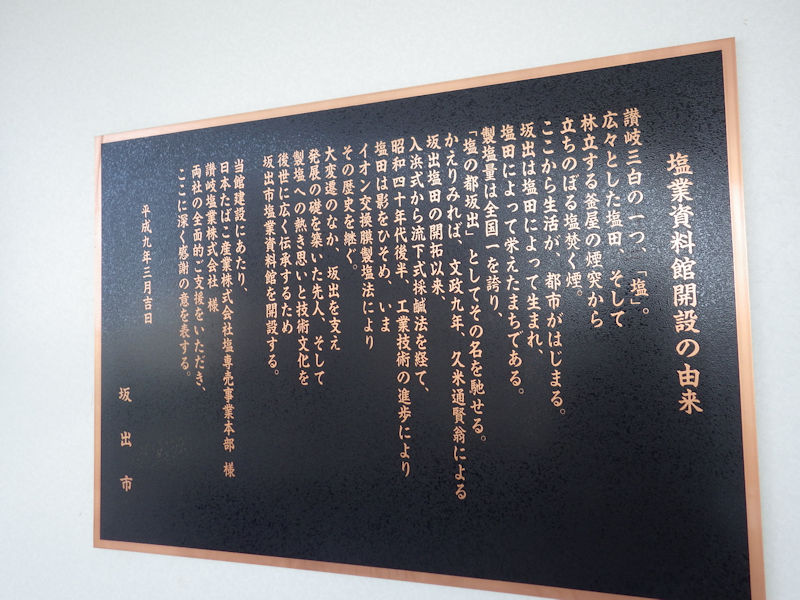 塩業資料館開設の由来
讃岐三白の一つ、「塩」。
広々とした塩田、そして
林立する釜屋の煙突から
立ちのぼる塩焚く煙。
ここから生活が、都市がはじまる。
坂出は塩田によって生まれ、
塩田によって栄えたまちである。
製塩量は全国一を誇り、
「塩の都坂出」としてその名を馳せる。
かえりみれば、文政九年、久米通賢翁による
坂出塩田の開拓以来、
入浜式から流下式採鹹法を経て、
昭和四十年代後半、工業技術の進歩により
塩田は影をひそめ、いま
イオン交換膜製塩法により
その歴史を継ぐ。
大変遷のなか、坂出を支え
発展の礎を築いた先人、そして
製塩への熱き思いと技術文化を
後世に広く伝承するため
坂出市塩業資料館を開設する。
当館建設にあたり、
日本たばこ産業株式会社塩専売事業本部 様
讃岐塩業株式会社 様
両社の全面的ご支援をいただき、
ここに深く感謝の意を表する。
平成九年三月吉日
坂出市